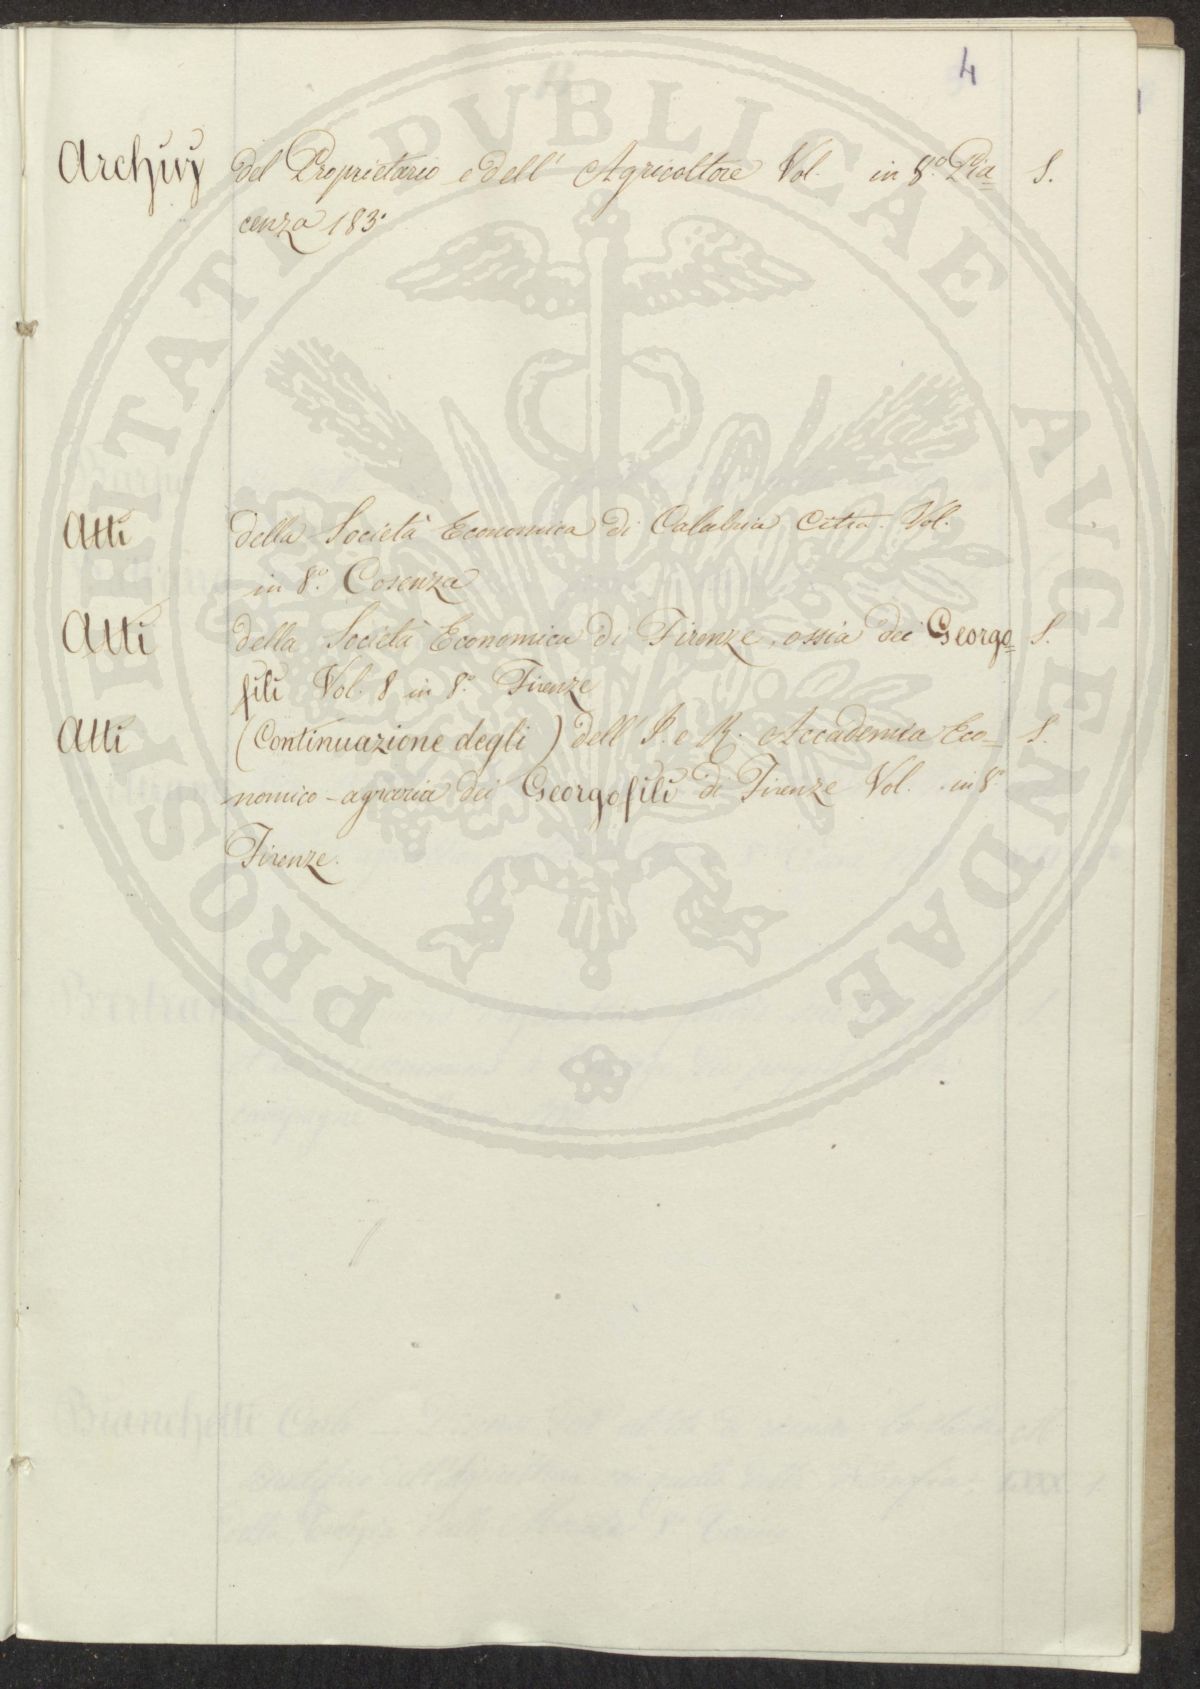 4
Archivj del Proprietario e dell' Agricoltore Vol. in 8.º Pia= S.
cenza 183.
Atti della Società Economica di Calabria Citra. Vol.
in 8.º Cosenza
Atti della Società Economica di Firenze, ossia dei Georgo= S.
fili Vol. 8 in 8.º Firenze
Atti (Continuazione degli) dell' I. e R. Accademia Eco= S.
nomico-agraria dei Georgofili di Firenze Vol. in 8.º
Firenze.
PROSPERITATI PVBLICAE AVGENDAE